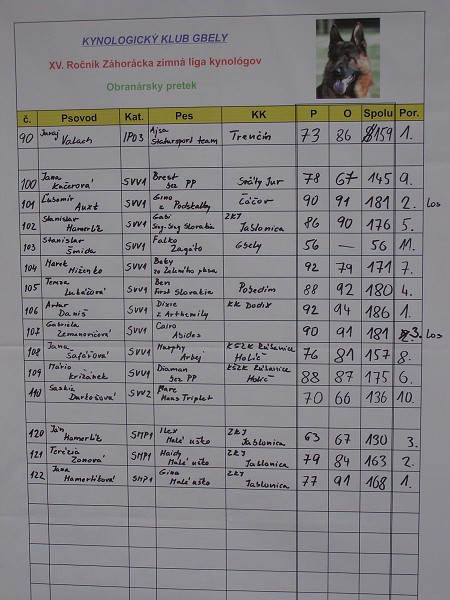 KYNOLOGICKÝ KLUB GBELY
XV. Ročník Záhorácka zimná liga kynológov
Obranársky pretek
č. Psovod Kat. Pes KK P O Spolu Por.
90 Juraj Valach IPO3 Ajsa Slatursport team Trenčín 73 86 159 1.
100 Jana Kučerová SVV1 Brest bez PP Svätý Jur 78 67 145 9.
101 Ľubomír Auxt SVV1 Gino z Podskalky Čáčov 90 91 181 2. Los
102 Stanislav Hamerlík SVV1 Gabi Sng-Sng Slovakia ZKJ Jablonica 86 90 176 5.
103 Stanislav Šmida SVV1 Falko Zagato Gbely 56 — 56 11.
104 Marek Miženko SVV1 Baky zo Zeleného plesa 92 79 171 7.
105 Tereza Lukáčová SVV1 Ben First Slovakia Posedim 88 92 180 4.
106 Artur Daniš SVV1 Dixie z Arthemily KK Dodix 92 94 186 1.
107 Gabriela Zemanovičová SVV1 Cairo Abidos 90 91 181 3. Los
108 Jana Šafášová SVV1 Murphy Arbej KŠZK Ružavice Holíč 76 81 157 8.
109 Mário Križánek SVV1 Diaman bez PP KŠZK Ružavice Holíč 88 87 175 6.
110 Saskia Darkošová SVV2 Marc Hans Triplet 70 66 136 10.
120 Ján Hamerlík SMP1 Ilex Malé uško ZKJ Jablonica 63 67 130 3.
121 Terézia Zonová SMP1 Haidy Malé uško ZKJ Jablonica 79 84 163 2.
122 Jana Hamerlíková SMP1 Gina Malé uško ZKJ Jablonica 77 91 168 1.